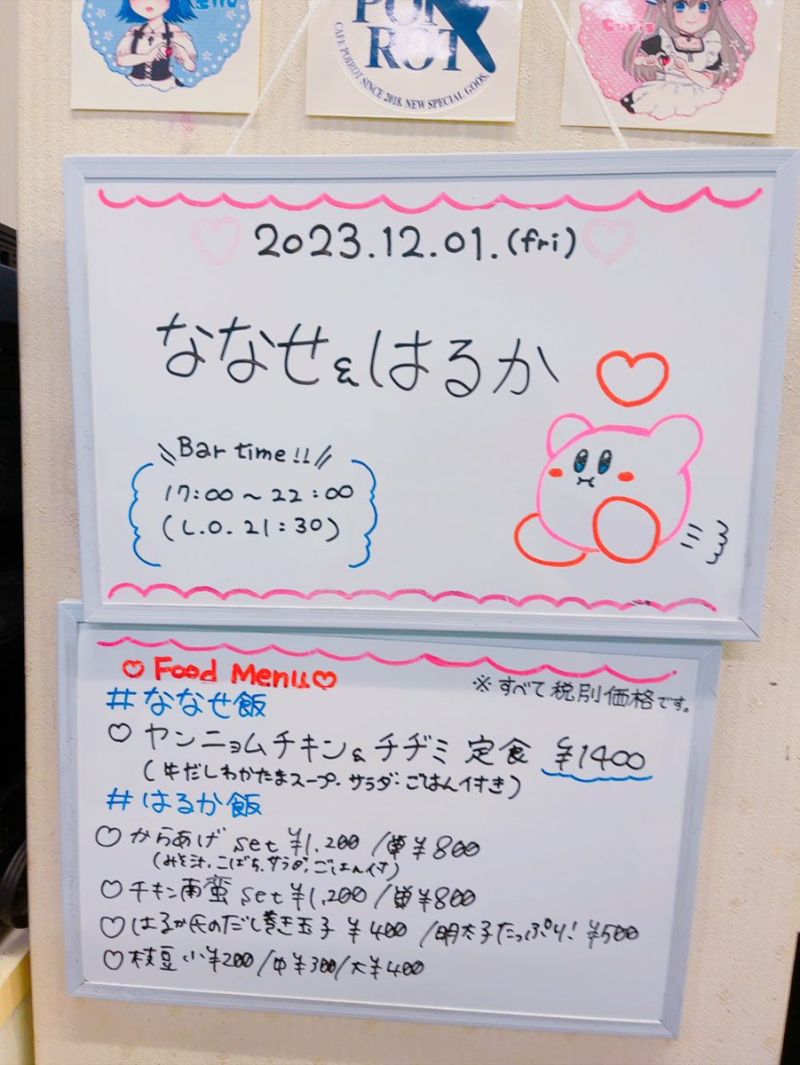 POI
ROT
CAFE POIROT SINCE 2018. NEW SPECIAL GOOS.
2023.12.01.(fri)
ななせ&はるか
\\Bar time!!//
17:00〜22:00
(L.O. 21:30)
♡Food Menu♡
※すべて税別価格です。
#ななせ飯
♡ ヤンニョムチキン&チヂミ 定食 ¥1400
(牛だしわかたまスープ・サラダ・ごはん付き)
#はるか飯
♡からあげ set ¥1,200 /単¥800
(みそ汁、こばち、サラダ、ごはん付)
♡チキン南蛮 set ¥1,200/単¥800
♡はるか氏のだし巻き玉子 ¥400 /明太子たっぷり! ¥500
♡枝豆 小¥200/中¥300/大¥400